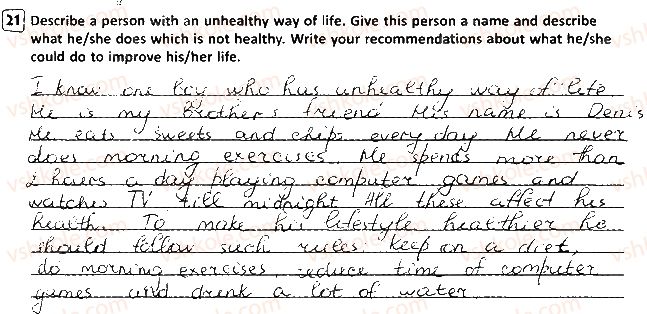 21 Describe a person with an unhealthy way of life. Give this person a name and describe
what he/she does which is not healthy. Write your recommendations about what he/she
could do to improve his/her life.
I know one boy who has unhealthy way of life
He is my Brother's friend His name is Denis
He eats sweets and chips every day He never
does morning exercises. He spends more than
2 haers a day playing computer games and
watches TV till midnight All these affect his
health. To make his lifestyle healthier he
should follow such rules: keep on a diet,
do morning exercises, reduce time of computer
games and drink a lot of water